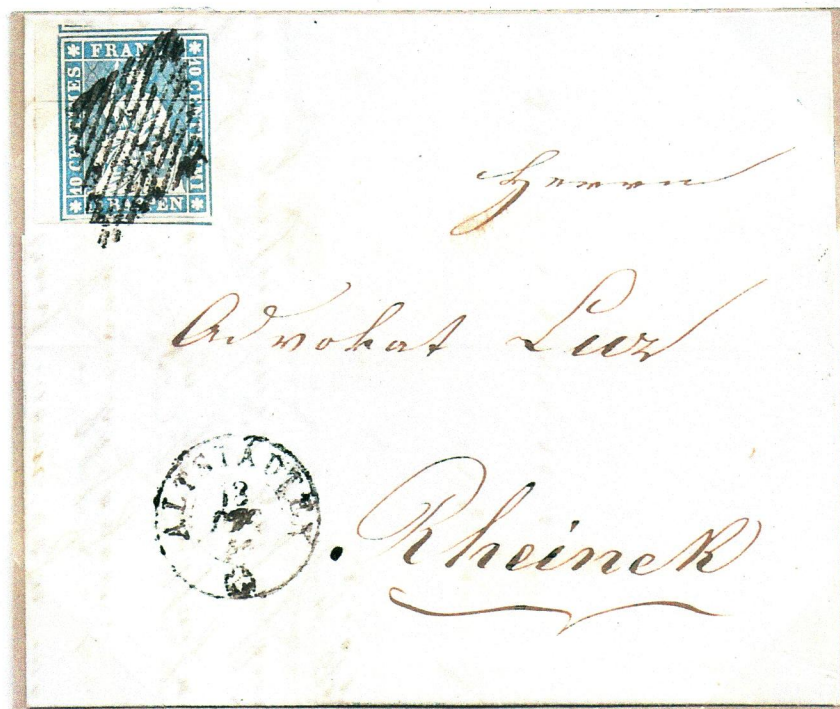 FRAN
10 CENTIMES
10 CENTESIMI
RAPPEN
Herrn
Advokat Luz
ALTSTÄDTEN
12
Rheineck